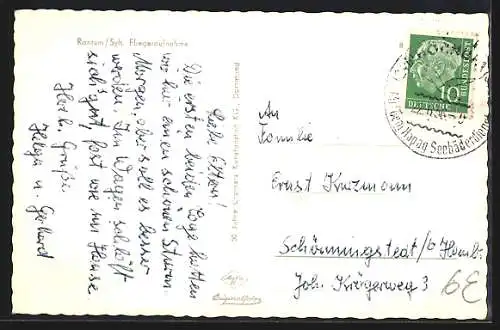 Rantum/Sylt. Fliegeraufnahme
Liebe Eltern!
Die ersten beiden Tage hatten
wir hier einen schönen Sturm.
Morgen, aber soll es besser
werden. Im Wagen schläft
sich's gut, fast wie im Hause
Herzl. Grüße
Helga u. Gerhard
An
Familie
Ernst Kurzmann
Schönningstedt/b Hamb.
Joh. Krögerweg 3
10
DEUTSCHE
BUNDESPOST
Seebäderdienst
Originalfoto